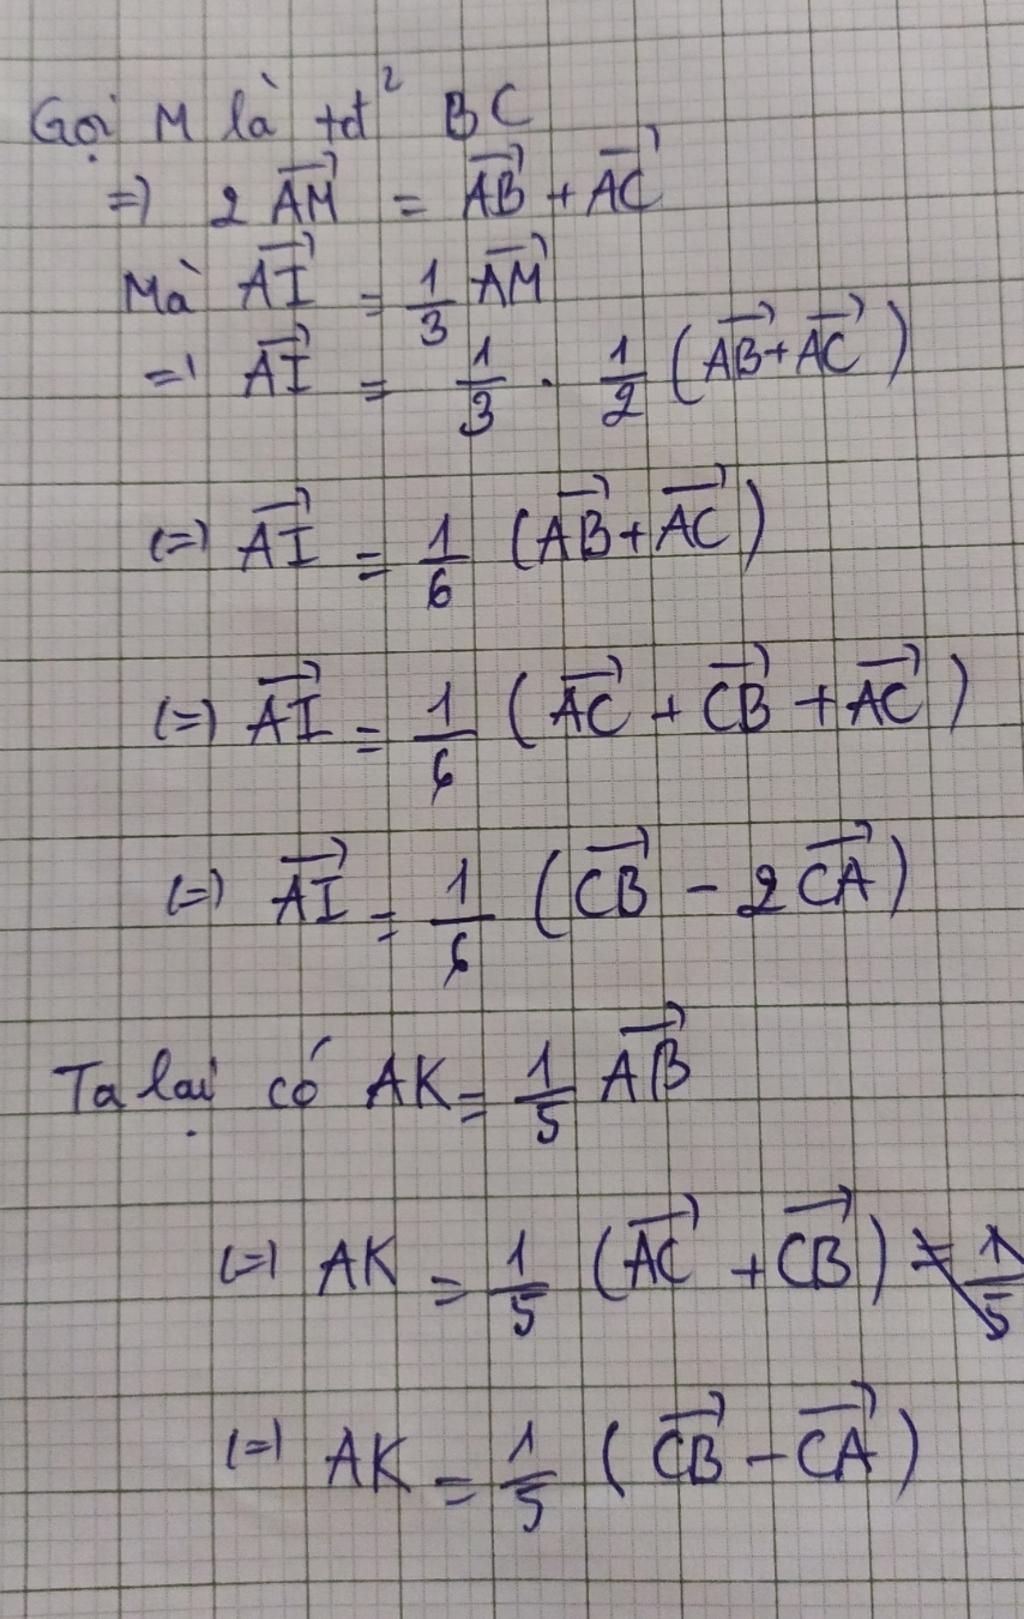 Gọi M là tđ² BC
=) 2 \overrightarrow{AM} = \overrightarrow{AB} + \overrightarrow{AC}
Mà \overrightarrow{AI} = \frac{1}{3} \overrightarrow{AM}
=) \overrightarrow{AI} = \frac{1}{3} . \frac{1}{2} (\overrightarrow{AB} + \overrightarrow{AC})
(=) \overrightarrow{AI} = \frac{1}{6} (\overrightarrow{AB} + \overrightarrow{AC})
(=) \overrightarrow{AI} = \frac{1}{6} (\overrightarrow{AC} + \overrightarrow{CB} + \overrightarrow{AC})
(=) \overrightarrow{AI} = \frac{1}{6} (\overrightarrow{CB} - 2 \overrightarrow{CA})
Ta lại có AK = \frac{1}{5} \overrightarrow{AB}
(=) AK = \frac{1}{5} (\overrightarrow{AC} + \overrightarrow{CB}) = \frac{1}{5}
(=) AK = \frac{1}{5} (\overrightarrow{CB} - \overrightarrow{CA})